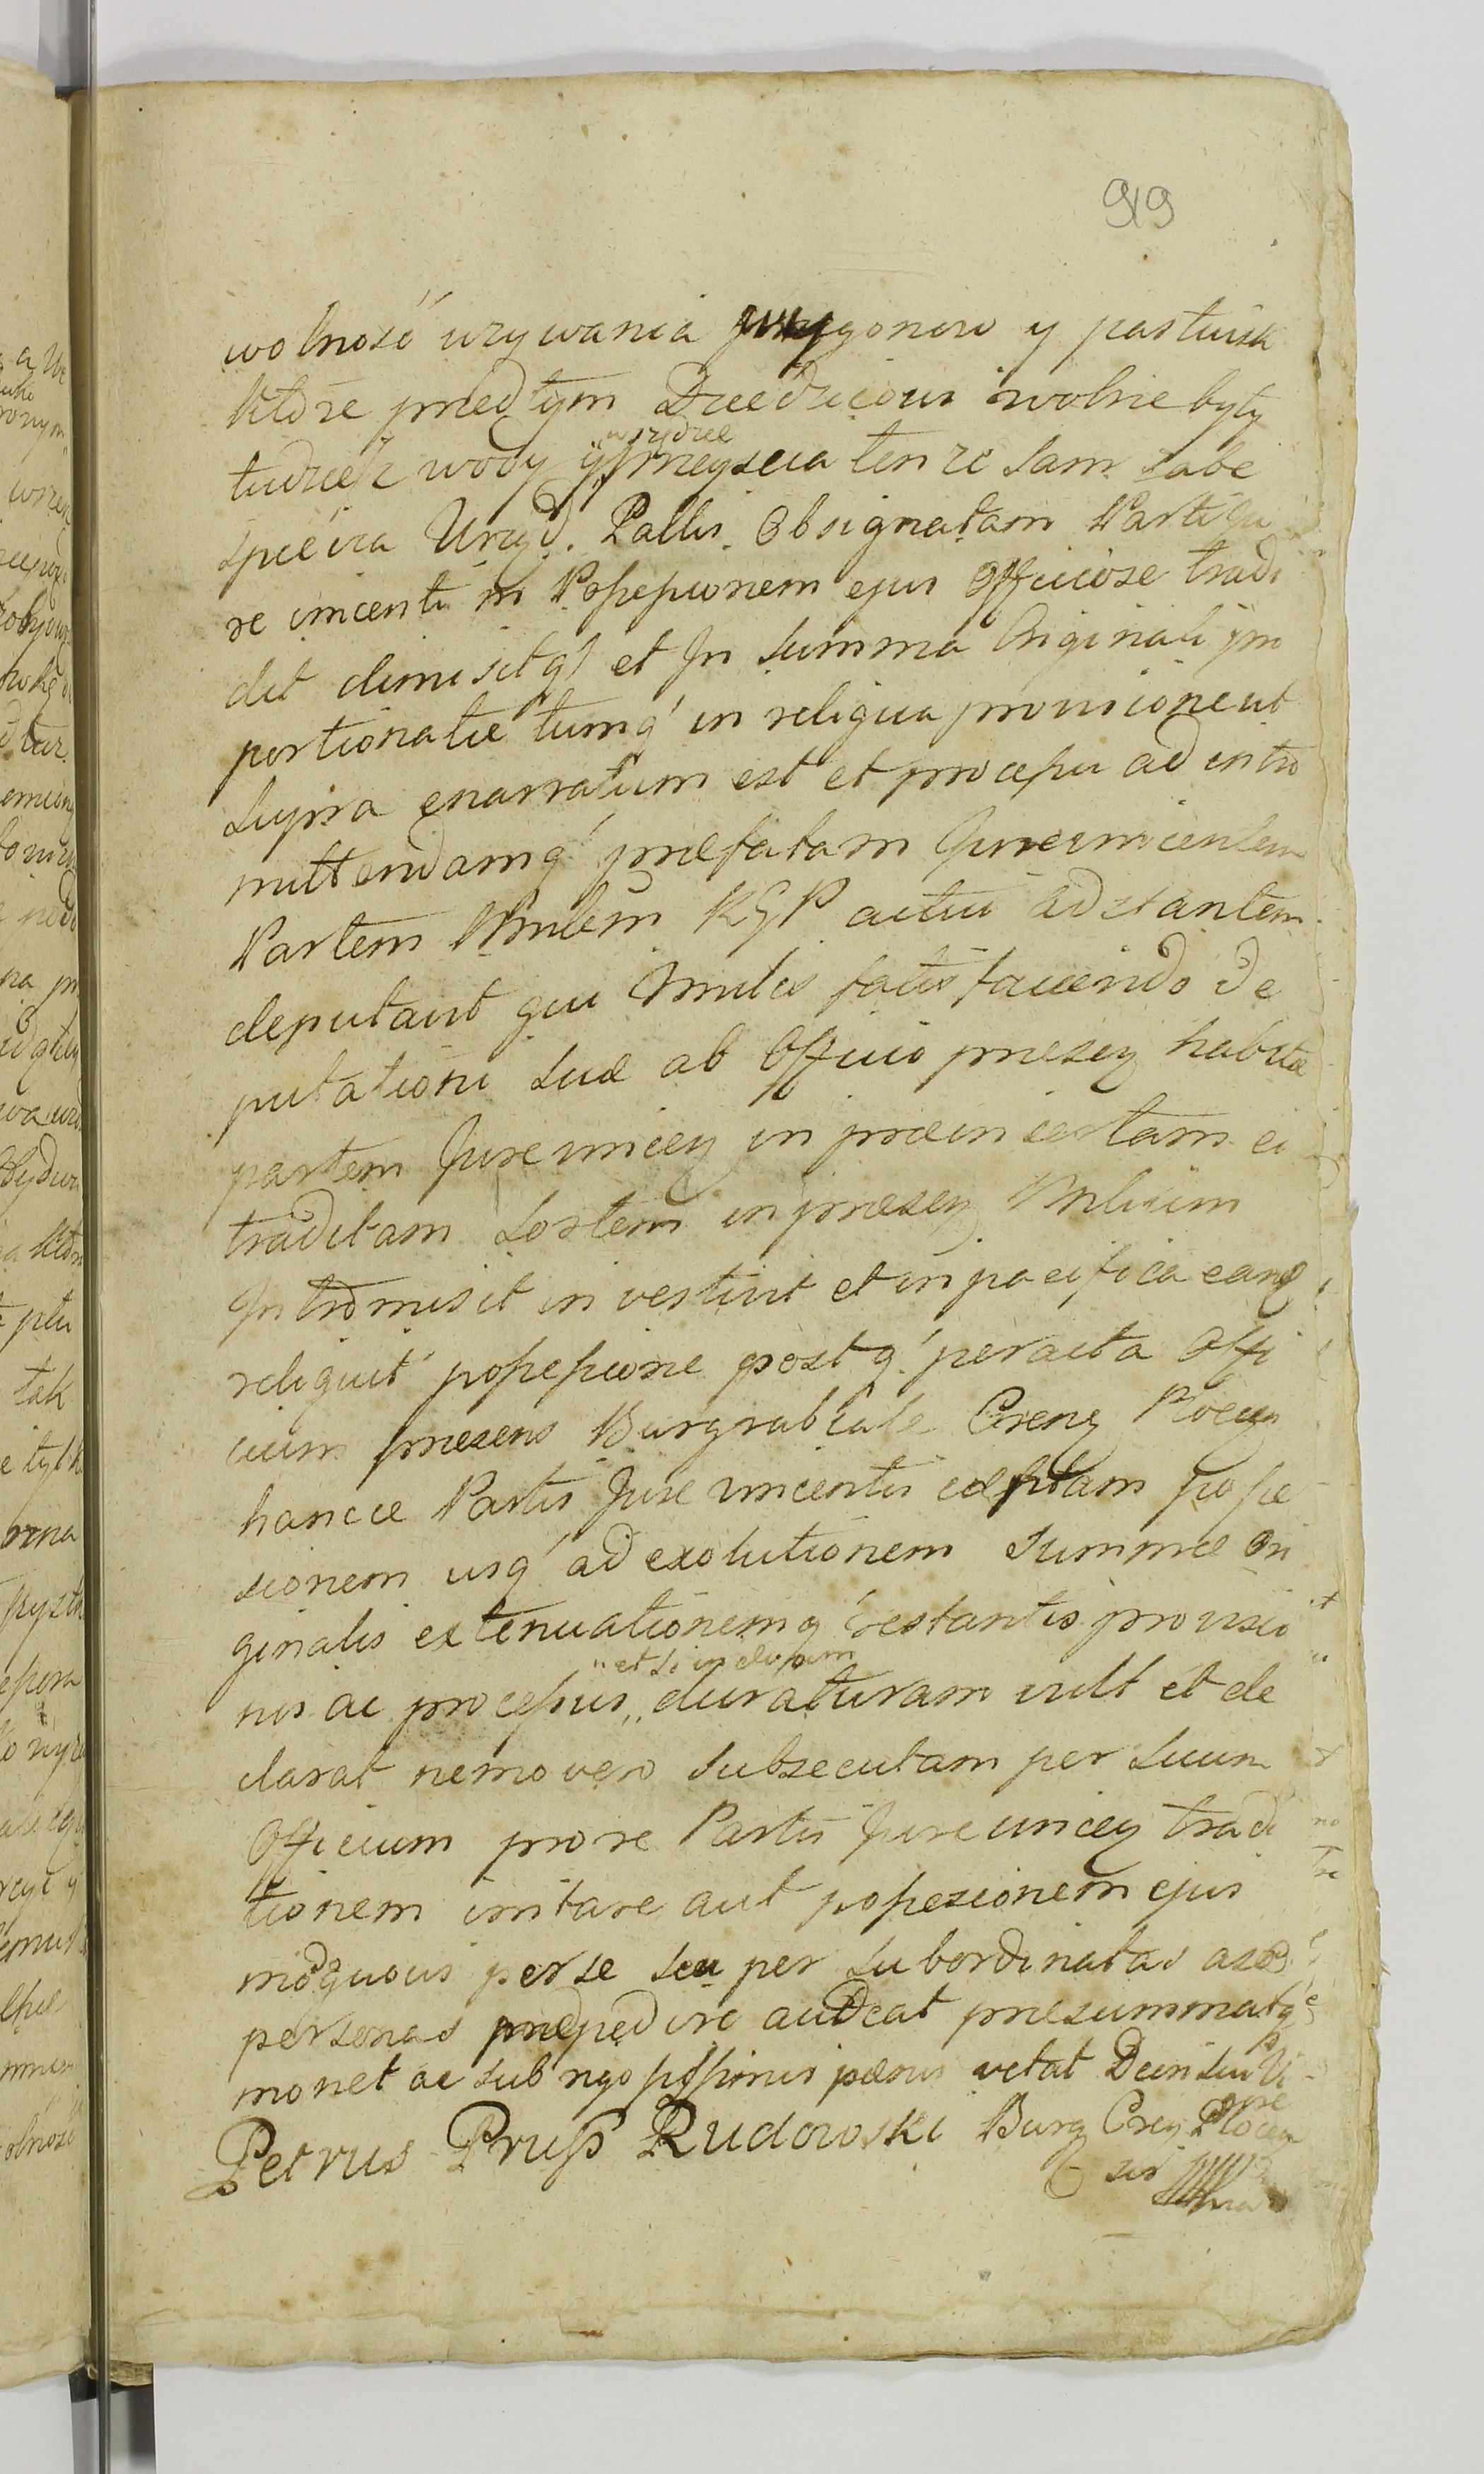 919
wolność uzywania przygonow y pastwisk
ktore przed tym Dziedzicowi wolne były
"wszędzie
tudzież wody y „ przeyscia tenze sam zabe
spiecza Urząd. Qallis Obsignatam Parti Ju
re vincenti in Possessionem ejus Officiose tradi
dit dimisitq' et In Summa Originali pro
portionatie tumq' in reliqua provisione ut
Supra enarratum est et processu ad intro
mittendamq' præfatam Jurevincentem
Partem Mnlem RGP actui adstantem
deputavit qui Mnlis satisfaciendo de
putationi suæ ab Officio præsen habitæ
partem Jurevincen in præinsertam ei
traditam Sortem in præsen Mnlium
Intromisit investivit et in pacifica eang
reliquit possessione post q' peracta Offi
cium præsens Burgrabiale Crens Plocen
hancce Partis Jure vincentis cæptam posse
sionem usq' ad exolutionem Summæ Ori
ginalis extenuationemq' restantis provisio
"et si in divum
nis ac processus „ duraturam vult et de
clarat nemo vero subsecutam per suum
Officium pro re Partis Jurevincen tradi
tionem irritare aut possesionem ejus
modquovis per se seu per subordinatas as
personas præpedire audeat præsummatq
monet ac sub rgo pssionis pænis vetat Decisui Vi
gore
Petrus Pruss Rudowski Burg Cren Plocen
sis